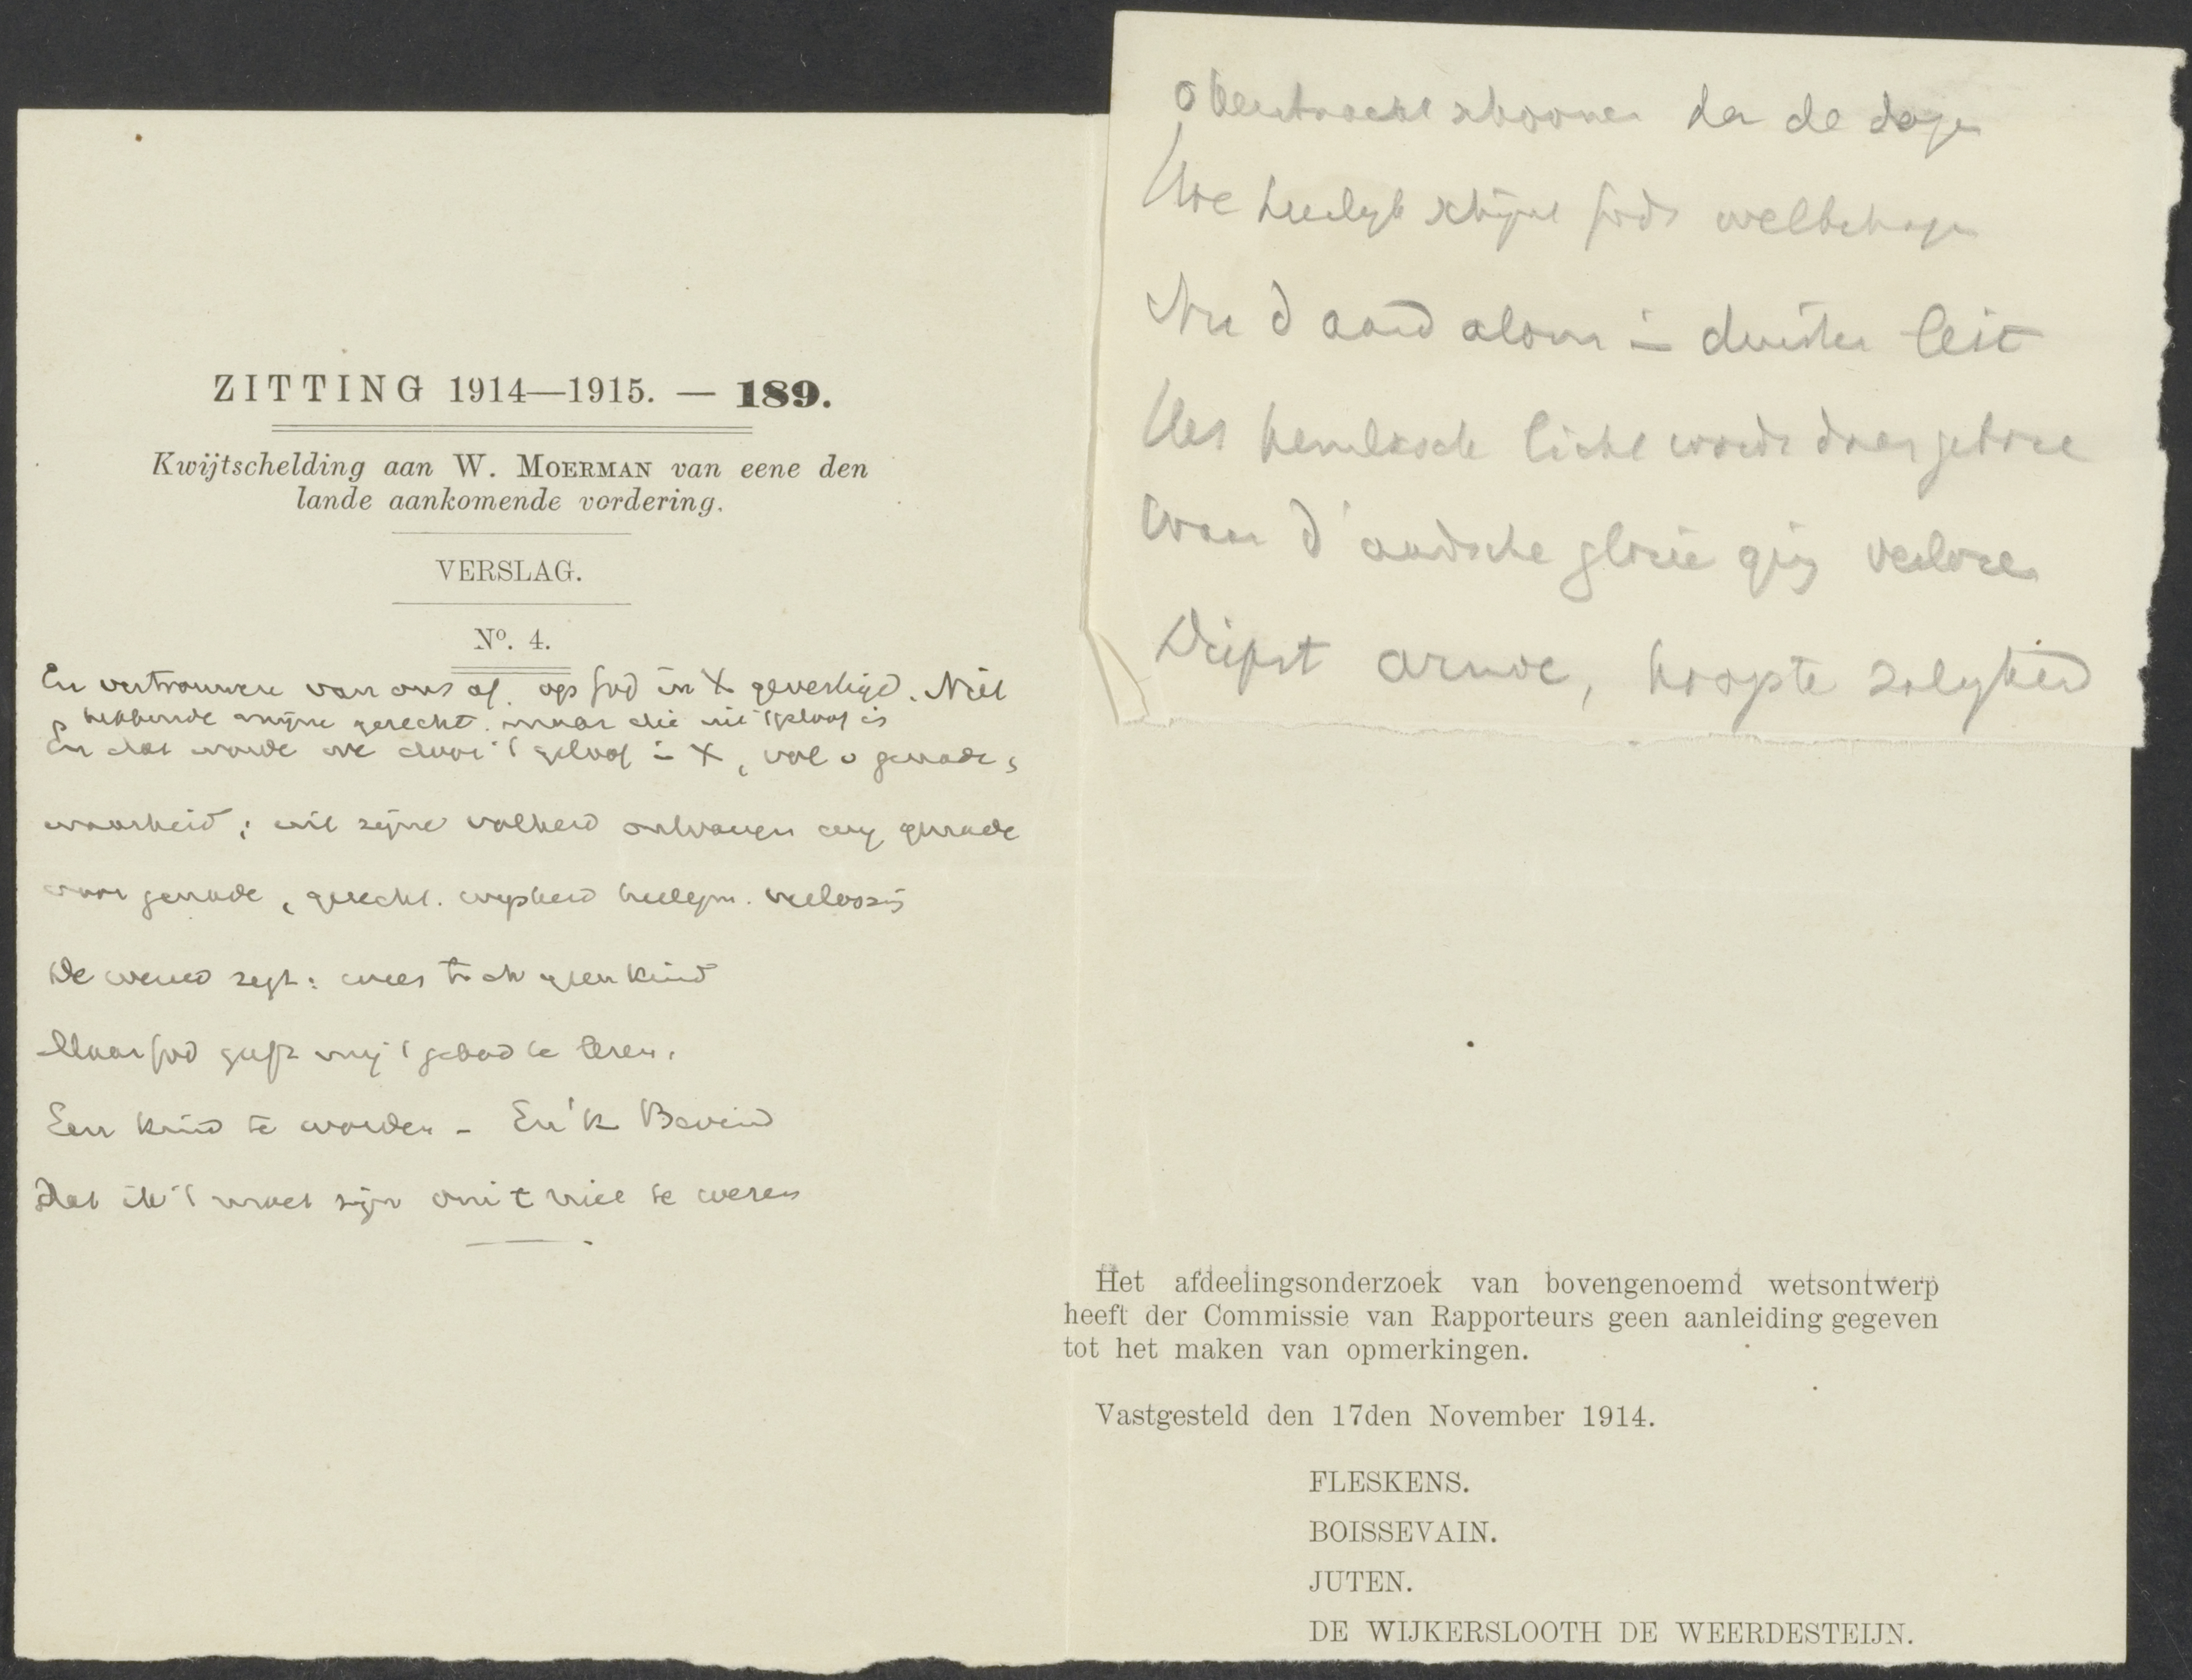 ZITTING 1914—1915. — 189.
Kwijtschelding aan W. MOERMAN van eene den
lande aankomende vordering.
VERSLAG.
No. 4.
En vertrouwen van ons af. op God in X gevestigd. Niet
hebbende mijne gerecht. maar die uit 't geloof is
En dat worde we door 't geloof in X, vol v genade &
waarheid; uit zijne volheid ontvangen wij genade
voor genade, gerecht. wijsheid heiligm. verlossing
De wereld zegt: wees toch geen kind
Maar God gaf mij 't gebod te leren,
Een kind te worden - En 'k Bevind
Dat ik 't moet zijn om 't niet te wezen
O Kerstnacht schooner dan de dagen
Hoe heerlijk schijnt Gods welbehagen
Nu d aard alom in duister leit
Het hemelsche licht wordt daar geboren
Waar d'aardsche glorie ging verloren
Diepst armoe, hoogste zaligheid
Het afdeelingsonderzoek van bovengenoemd wetsontwerp
heeft der Commissie van Rapporteurs geen aanleiding gegeven
tot het maken van opmerkingen.
Vastgesteld den 17den November 1914.
FLESKENS.
BOISSEVAIN.
JUTEN.
DE WIJKERSLOOTH DE WEERDESTEIJN.